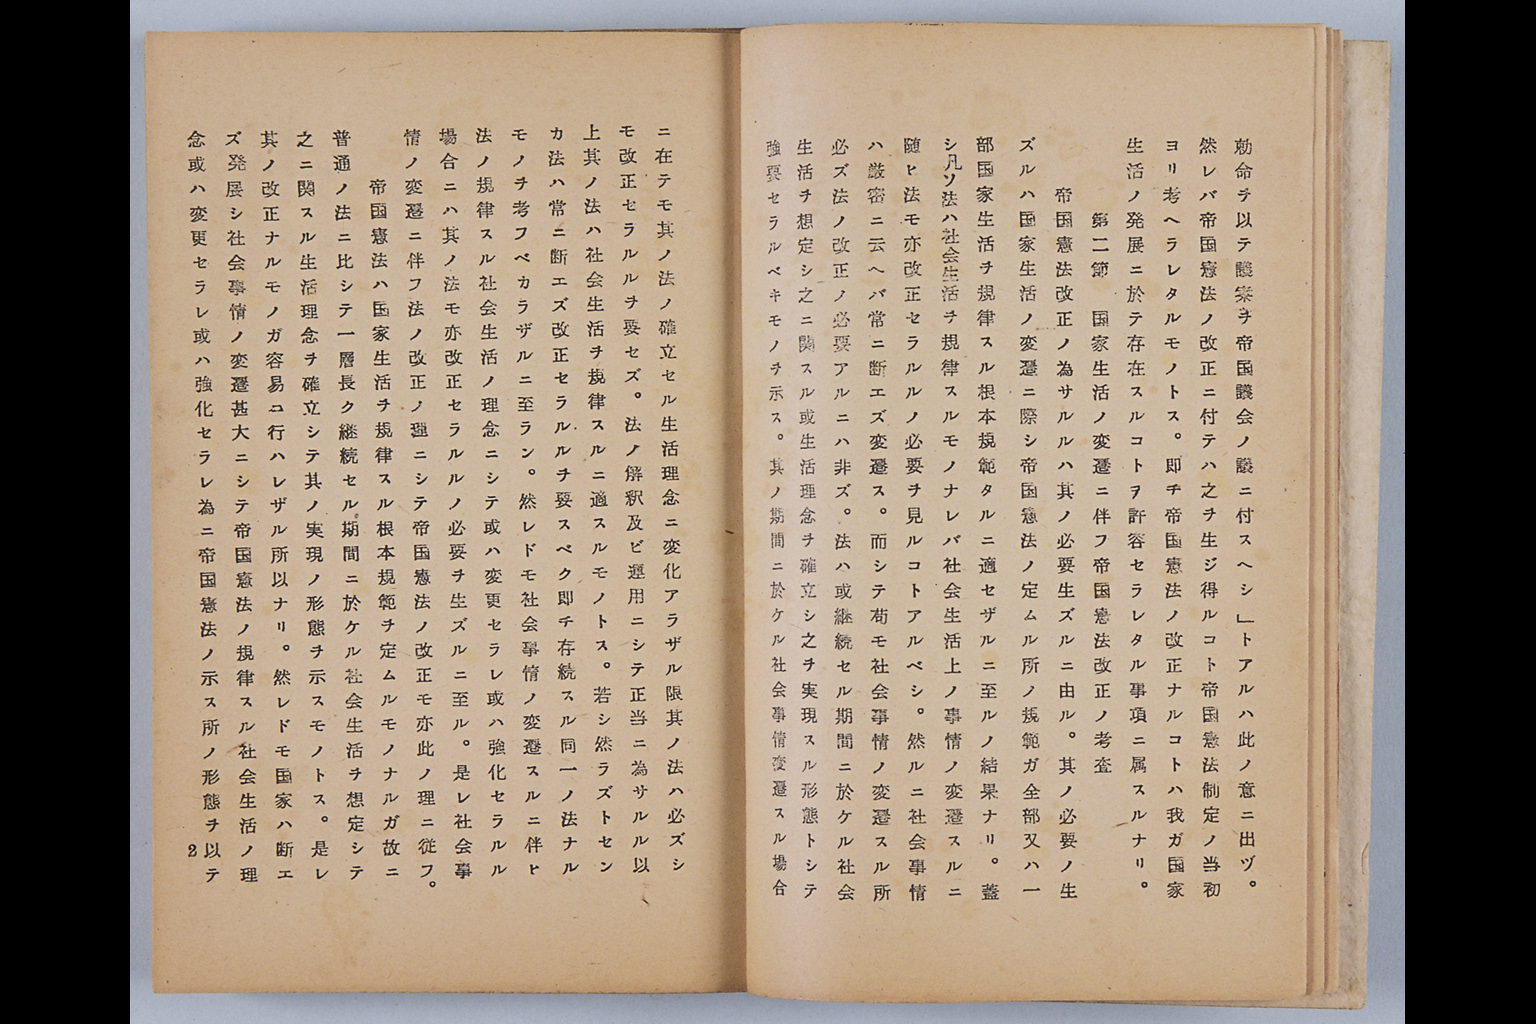 勅命ヲ以テ議案ヲ帝国議会ノ議ニ付スヘシ」トアルハ此ノ意ニ出ヅ。
然レバ帝国憲法ノ改正ニ付テハ之ヲ生ジ得ルコト帝国憲法制定ノ当初
ヨリ考ヘラレタルモノトス。即チ帝国憲法ノ改正ナルコトハ我ガ国家
生活ノ発展ニ於テ存在スルコトヲ許容セラレタル事項ニ属スルナリ。
第二節　国家生活ノ変遷ニ伴フ帝国憲法改正ノ考査
帝国憲法改正ノ為サルルハ其ノ必要生ズルニ由ル。其ノ必要ノ生
ズルハ国家生活ノ変遷ニ際シ帝国憲法ノ定ムル所ノ規範ガ全部又ハ一
部国家生活ヲ規律スル根本規範タルニ適セザルニ至ルノ結果ナリ。蓋
シ凡ソ法ハ社会生活ヲ規律スルモノナレバ社会生活上ノ事情ノ変遷スルニ
随ヒ法モ亦改正セラルルノ必要ヲ見ルコトアルベシ。然ルニ社会事情
ハ厳密ニ云ヘバ常ニ断エズ変遷ス。而シテ苟モ社会事情ノ変遷スル所
必ズ法ノ改正ノ必要アルニハ非ズ。法ハ或継続セル期間ニ於ケル社会
生活ヲ想定シ之ニ関スル或生活理念ヲ確立シ之ヲ実現スル形態トシテ
強要セラルベキモノヲ示ス。其ノ期間ニ於ケル社会事情変遷スル場合
ニ在テモ其ノ法ノ確立セル生活理念ニ変化アラザル限其ノ法ハ必ズシ
モ改正セラルルヲ要セズ。法ノ解釈及ビ運用ニシテ正当ニ為サルル以
上其ノ法ハ社会生活ヲ規律スルニ適スルモノトス。若シ然ラズトセン
カ法ハ常ニ断エズ改正セラルルヲ要スベク即チ存続スル同一ノ法ナル
モノヲ考フベカラザルニ至ラン。然レドモ社会事情ノ変遷スルニ伴ヒ
法ノ規律スル社会生活ノ理念ニシテ或ハ変更セラレ或ハ強化セラルル
場合ニハ其ノ法モ亦改正セラルルノ必要ヲ生ズルニ至ル。是レ社会事
情ノ変遷ニ伴フ法ノ改正ノ理ニシテ帝国憲法ノ改正モ亦此ノ理ニ従フ。
帝国憲法ハ国家生活ヲ規律スル根本規範ヲ定ムルモノナルガ故ニ
普通ノ法ニ比シテ一層長ク継続セル期間ニ於ケル社会生活ヲ想定シテ
之ニ関スル生活理念ヲ確立シテ其ノ実現ノ形態ヲ示スモノトス。是レ
其ノ改正ナルモノガ容易ニ行ハレザル所以ナリ。然レドモ国家ハ断エ
ズ発展シ社会事情ノ変遷甚大ニシテ帝国憲法ノ規律スル社会生活ノ理
念或ハ変更セラレ或ハ強化セラレ為ニ帝国憲法ノ示ス所ノ形態ヲ以テ
2